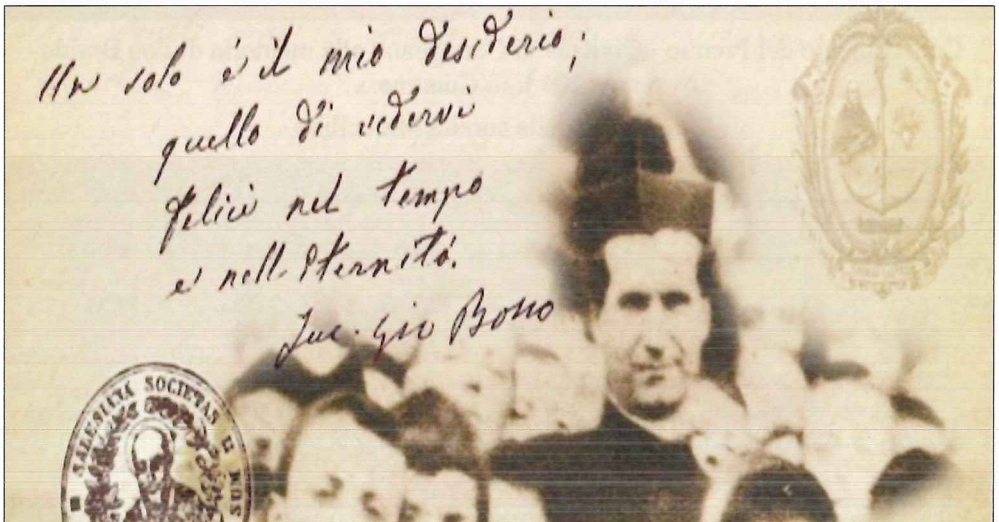 Un solo è il mio desiderio;
quello di vedervi
felici nel tempo
e nell'Eternità.
Sac. Gio Bosco
SALESIANA SOCIETAS